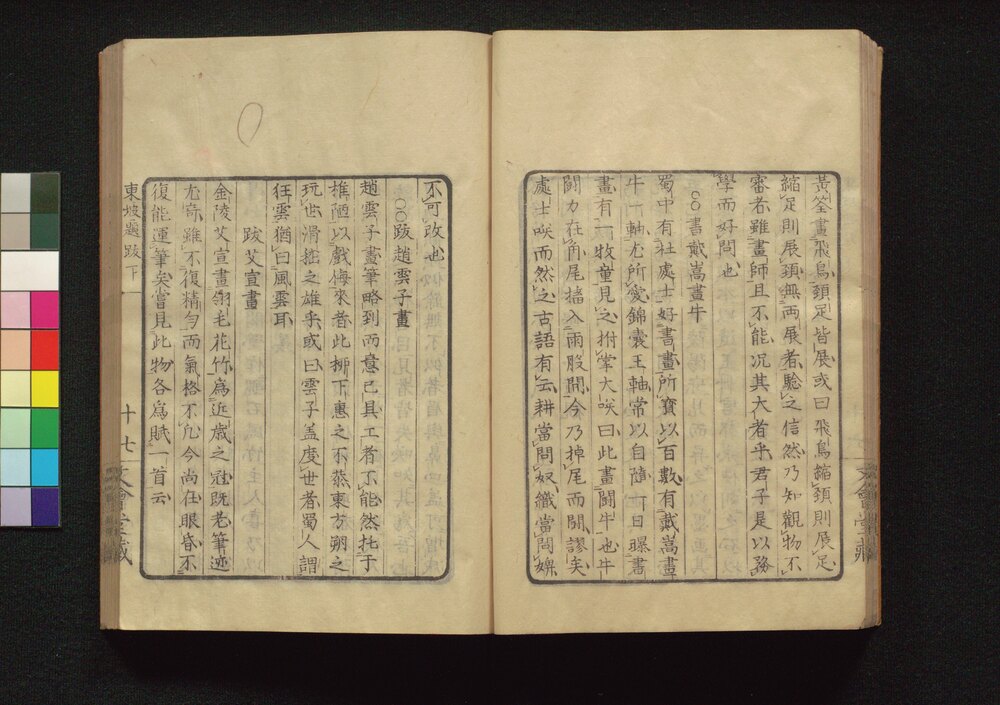 黃筌畫飛鳥頸足皆展或曰飛鳥縮頸則展足
縮足則展頸無兩展者驗之信然乃知觀物不
審者雖畫師且不能况其大者乎君子是以務
學而好問也
○○書戴嵩畫牛
蜀中有杜處士好書畫所寶以百數有戴嵩畫
牛一軸尤所愛錦囊玉軸常以自隨一日曝書
畫有一牧童見之拊掌大咲曰此畫鬪牛也牛
鬪力在角尾搐入兩股間今乃掉尾而鬪謬矣
處士咲而然之古語有云耕當問奴織當問婢
不可改也
○○跋趙雲子畫
趙雲子畫筆略到而意已具工者不能然托于
椎陋以戲侮來者此柳下惠之不恭東方朔之
玩世滑稽之雄乎或曰雲子蓋度世者蜀人謂
狂雲猶曰風雲耳
跋艾宣畫
金陵艾宣畫翎毛花竹爲近歲之冠既老筆迹
尤奇雖不復精匀而氣格不凡今尚在眼昏不
復能運筆矣嘗見此物各爲賦一首云
東坡題跋下
十七
文會堂藏
文會堂藏